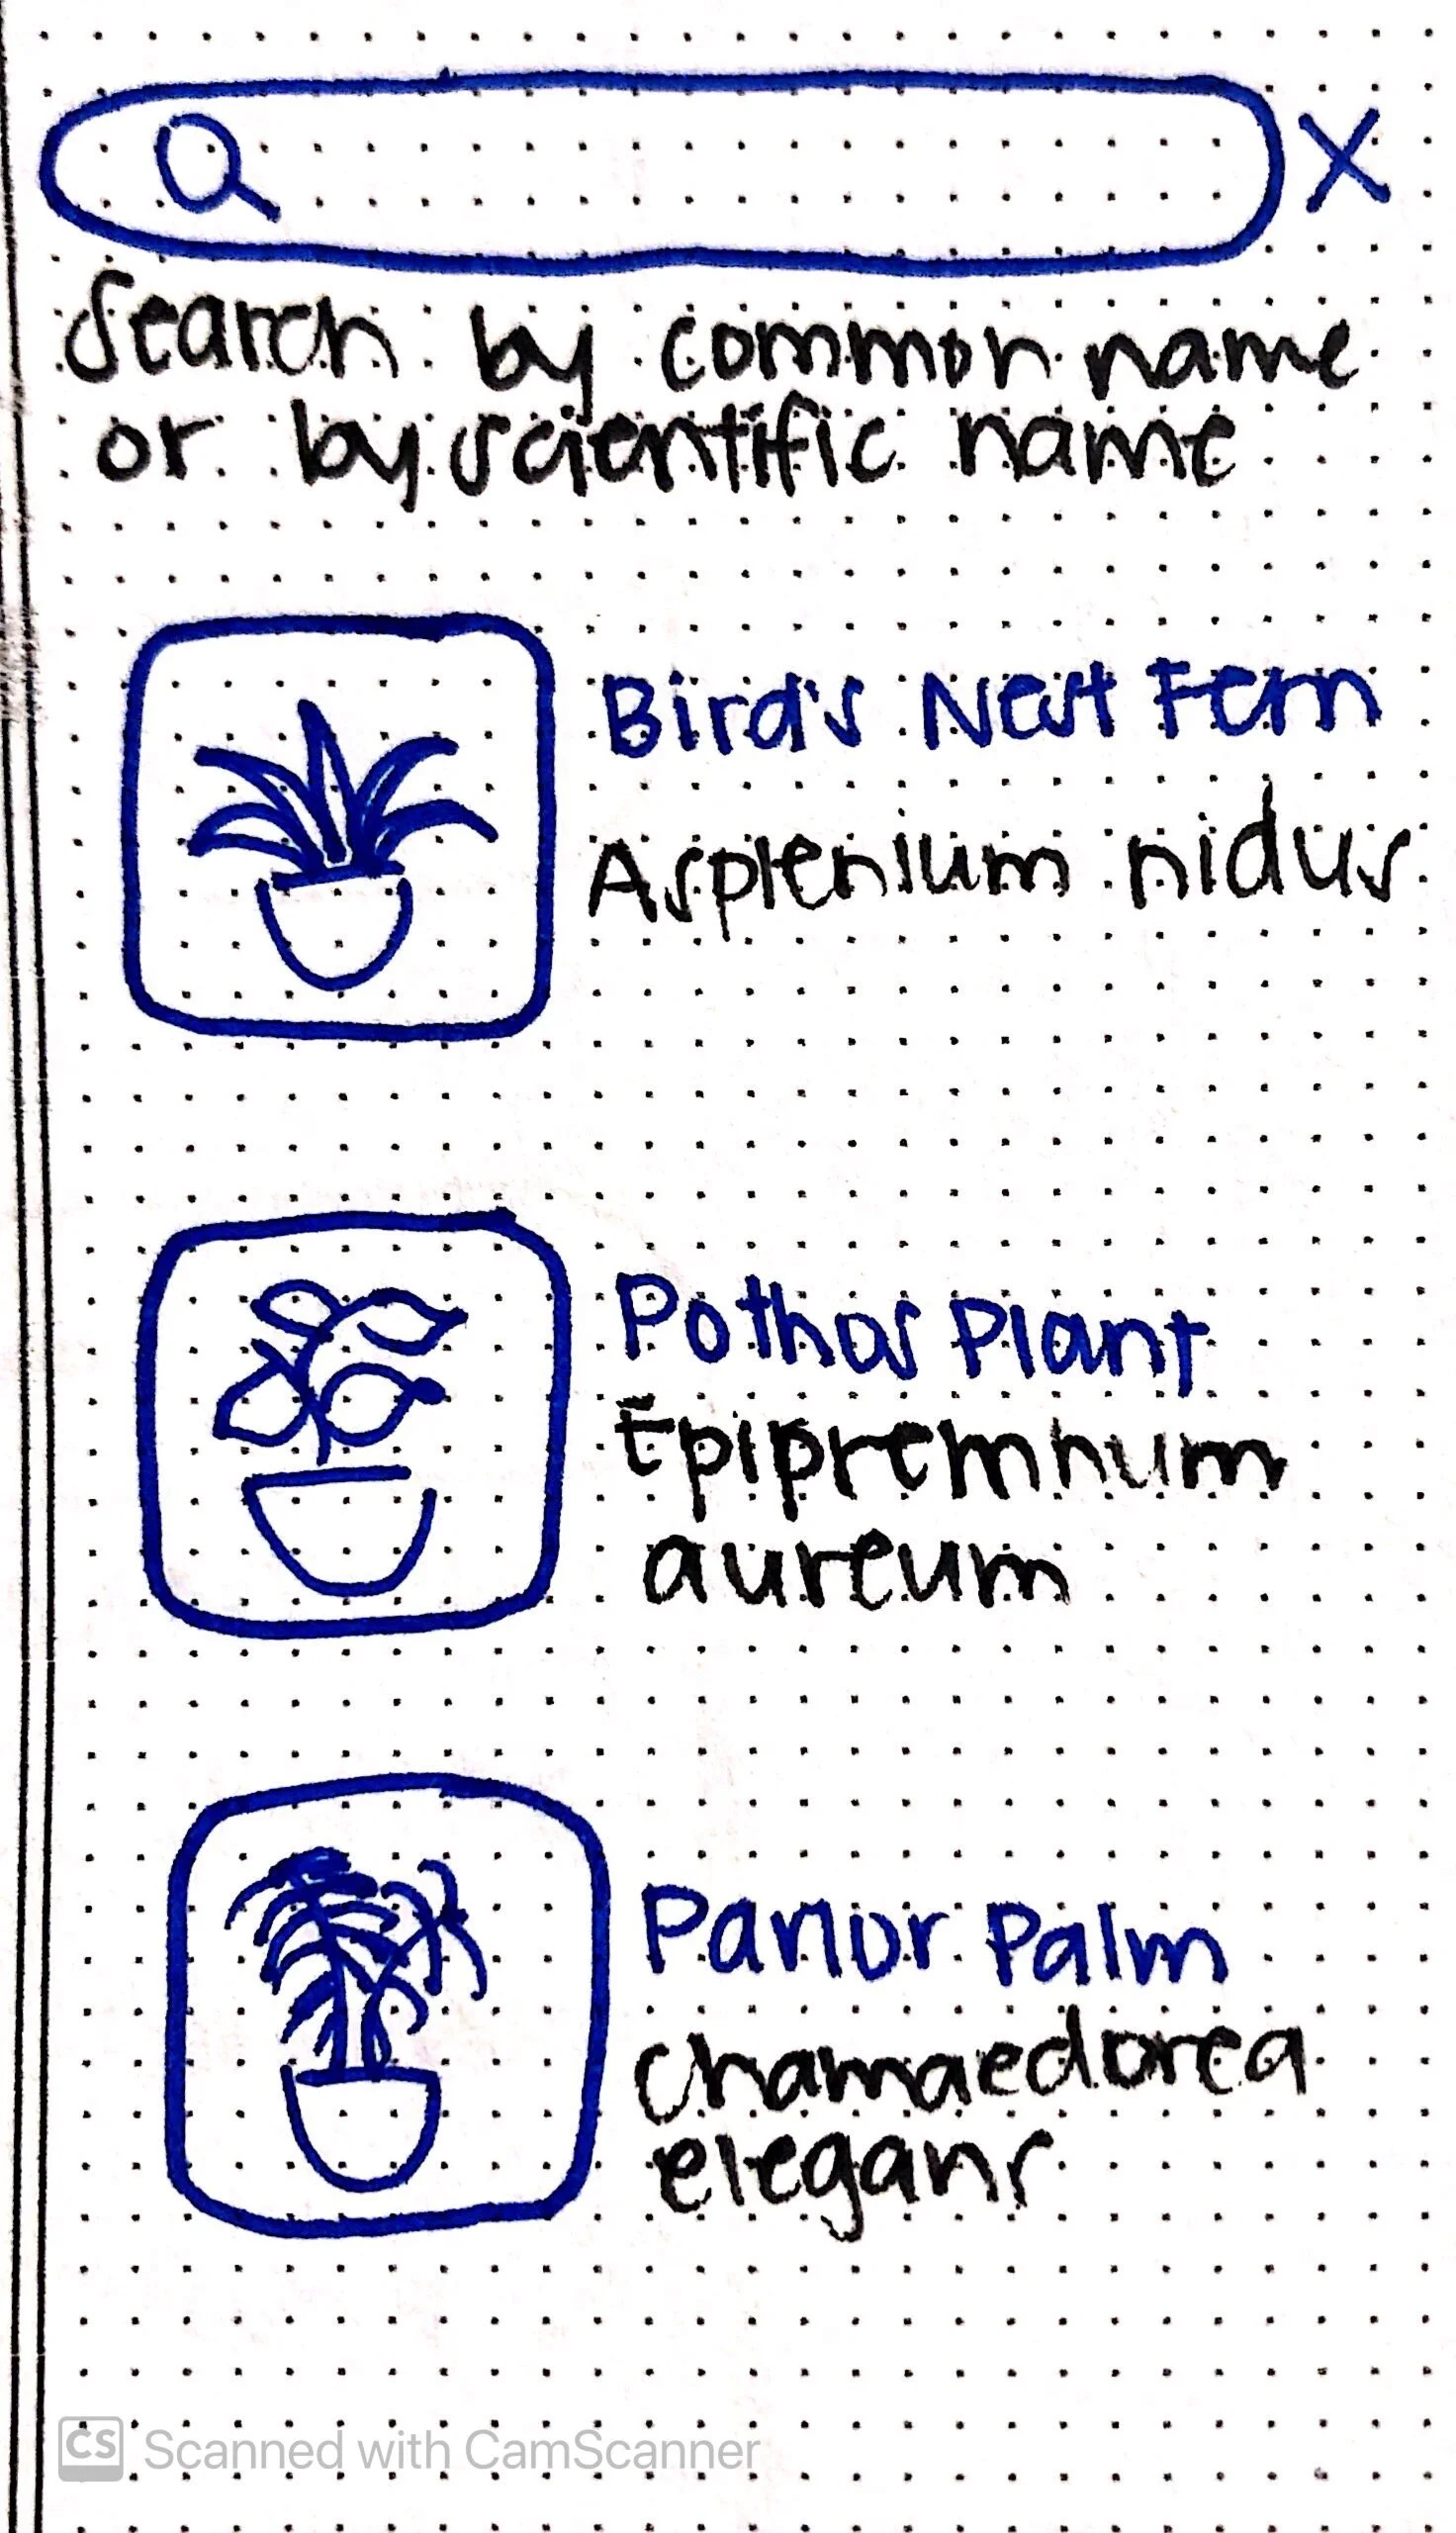 X
Search by common name
or by scientific name
Bird's Nest Fern
Asplenium nidus
Pothos Plant
Epipremnum
aureum
Parlor Palm
Chamaedorea
elegans
CS Scanned with CamScanner